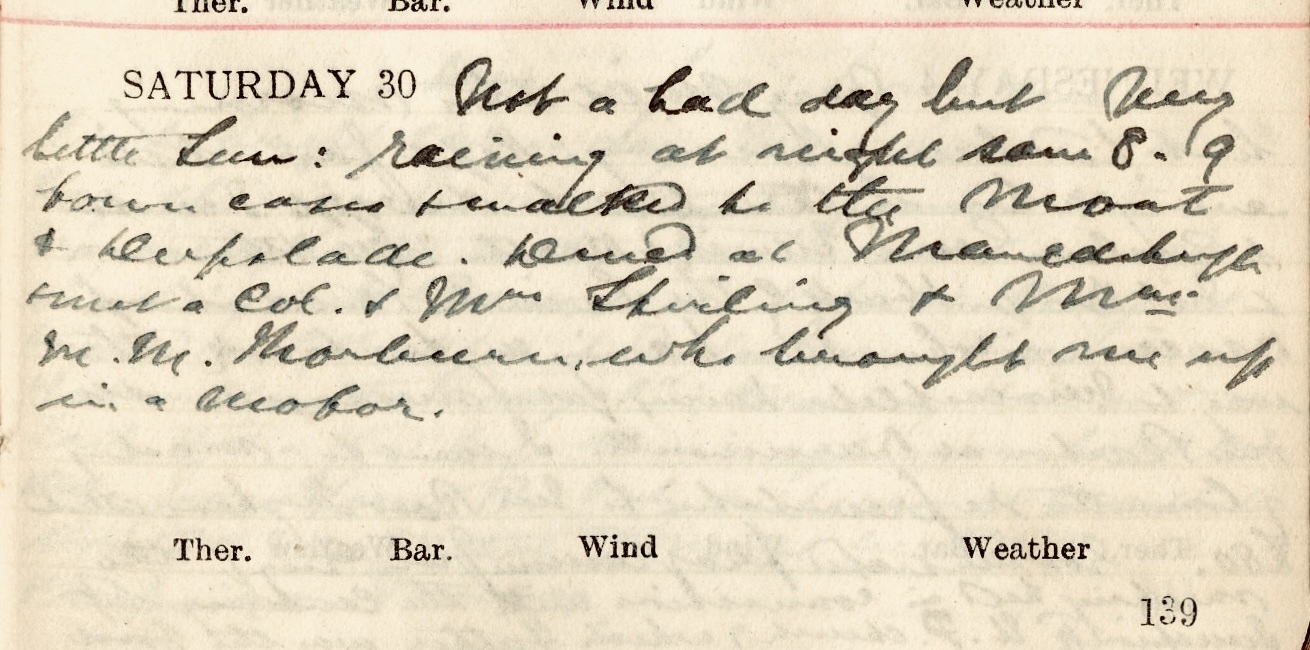 Ther. Bar. Wind Weather
SATURDAY 30 Not a bad day but very
little Sun: raining at night saw 8. 9
town cases & walked to the Moat
& . Dined at
& met a Col. & Mrs Stirling & Mrs
M. M. Thorburn, who brought me up
in a motor.
Ther. Bar. Wind Weather
139